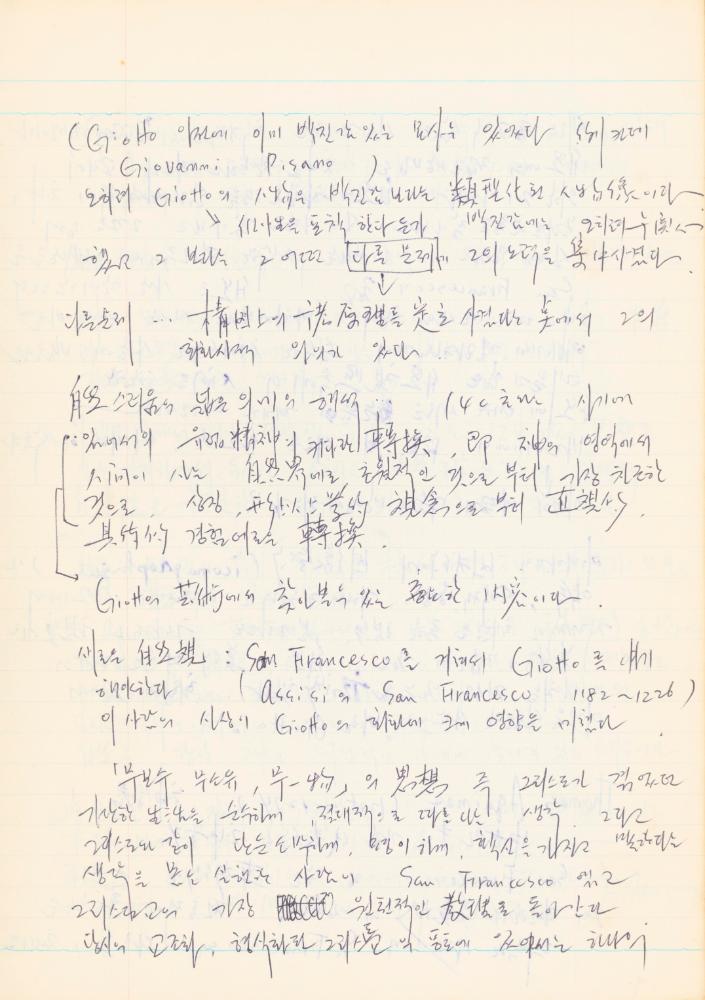 (Giotto 이전에 이미 박진감있는 묘사는 있었다
Giovanni Pisano)
오히려 Giotto의 人物은 박진감 보다는 類型化한 人物像이다
포착 한다든가 박진감에는 오히려
그 보다는 그 어떤 다른 문제에 그의 노력을 集中시켰다.
다른문제 … 構図上의 諸原理를 定立 시켰다는 点에서 그의
회화사적 의의가 있다.
自然스러움의 넓은 의미의 해석 … 14c 초라는 시기에
있어서의 유럽精神의 커다란 轉換, 即 神의 영역에서
사는 自然界에로, 초월적인 것으로 부터 가장 친근한
것으로, 상징, 觀念으로 부터 直接的,
具体的 경험에로의 轉換.
Giotto의 芸術에서 찾아볼수 있는 중요한 事実이다.
새로운 自然觀 San Francesco를 거쳐서 Giotto를 얘기
해야한다 (Assisi의 San Francesco 1182~1226)
이 사람의 사상이 Giotto의 회화에 크게 영향을 미쳤다.
「무보수, 무소유, 무一物」의 思想 즉 그리스도가 겪었던
가난한 生活을 순수하게, 절대적으로 따른다는 생각. 그리고
그리스도와 같이 단순소박하게, 명이하게, 확신을 가지고 말한다는
생각을 몸소 실현한 사람이 San Francesco 였고
그리스도교의 가장 원천적인 教理로 돌아간다
당시의 고조화, 형식화된 그리스도교의 풍토에 있어서는 하나의